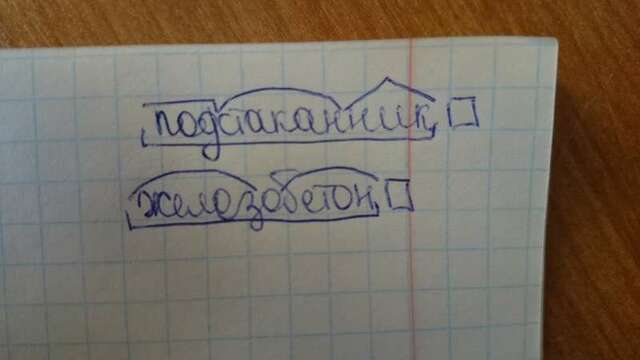 подстаканник
железобетон